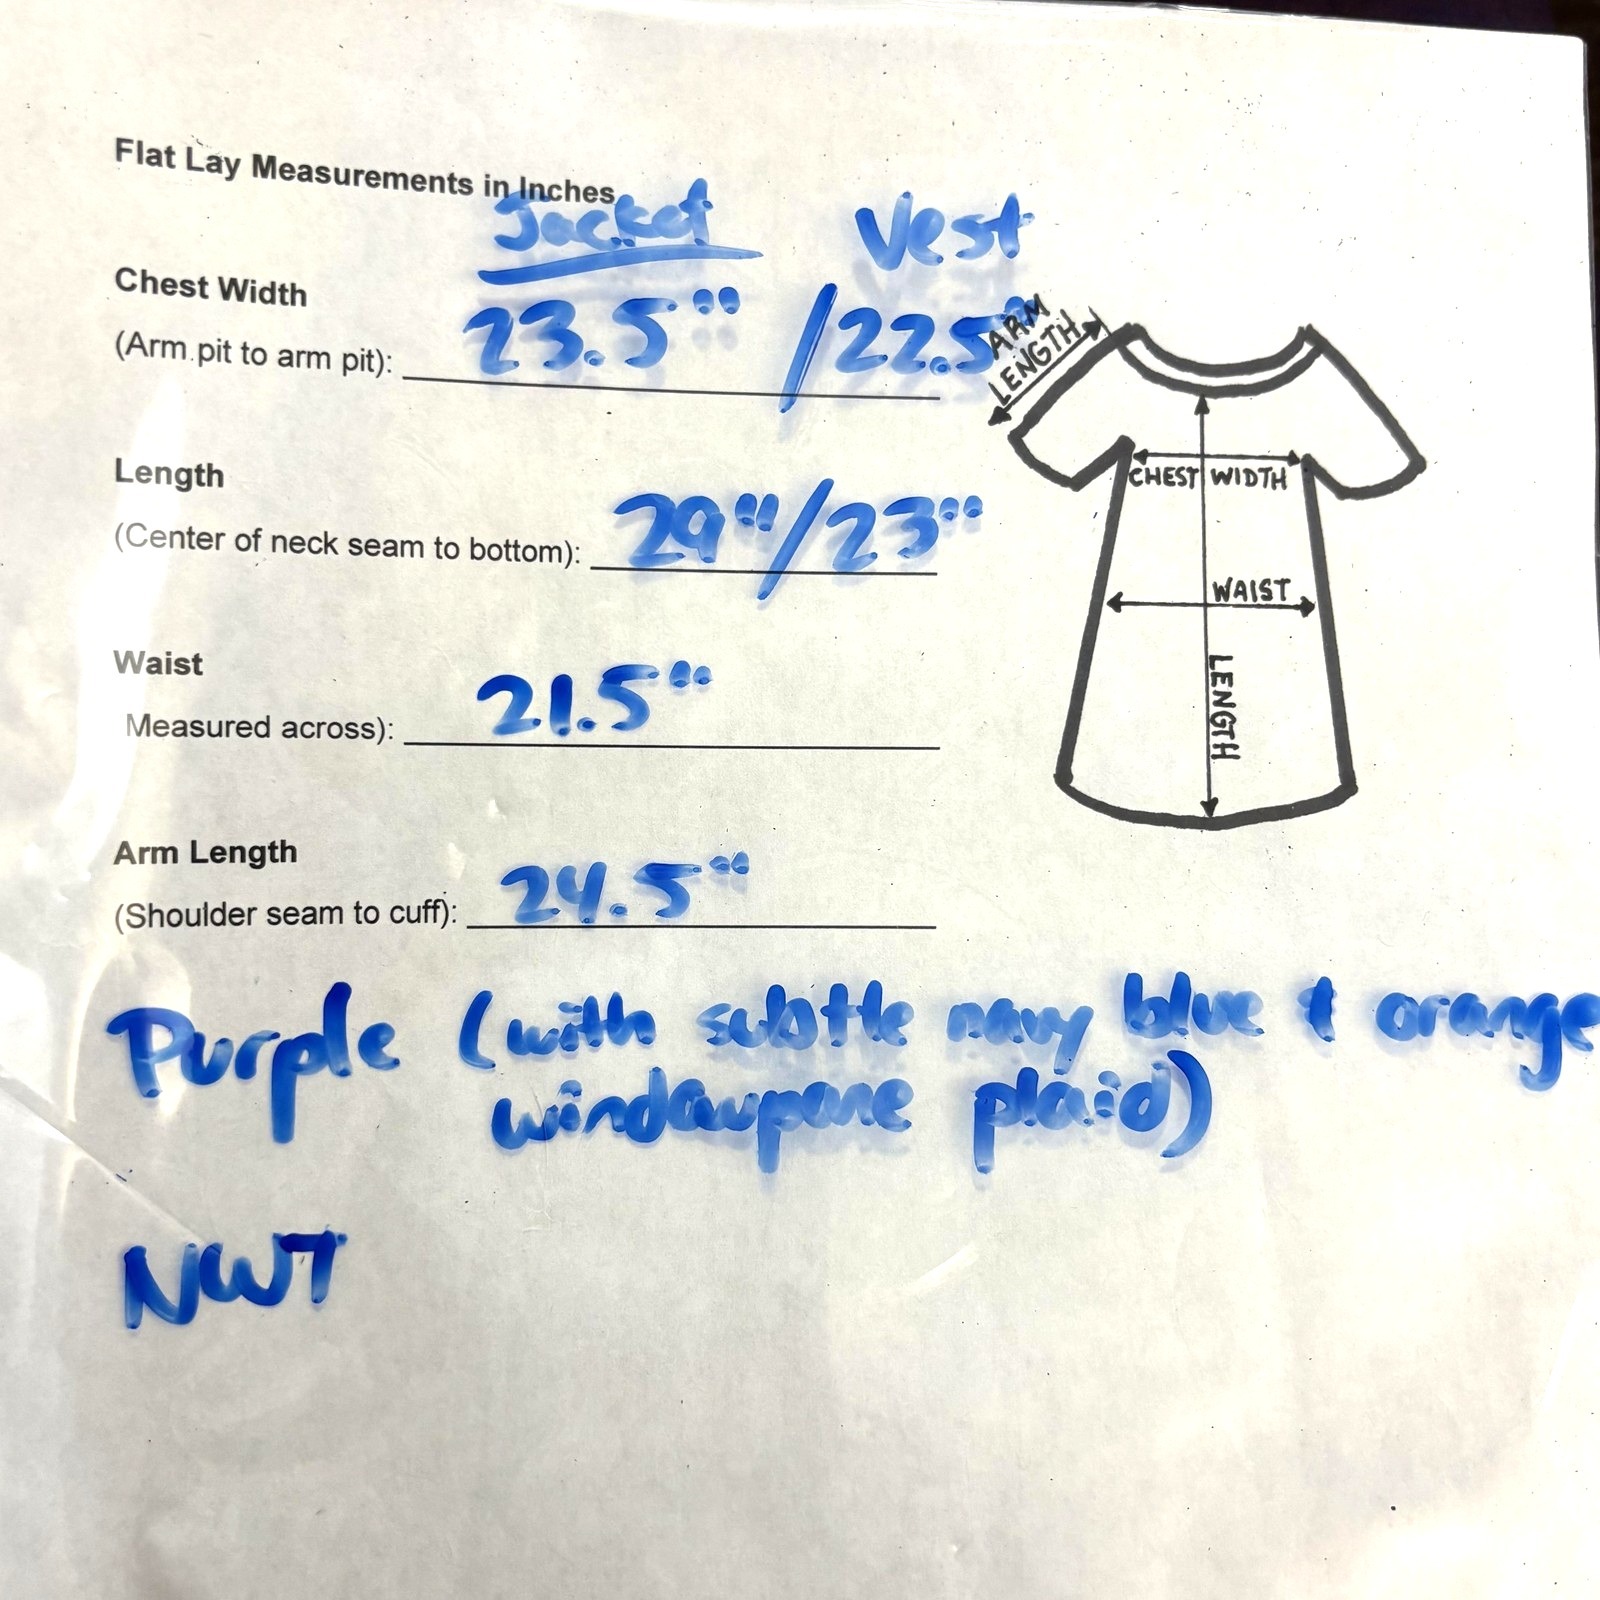 Flat Lay Measurements in Inches
Jacket Vest
Chest Width
(Arm pit to arm pit): 23.5" / 22.5"
Length
(Center of neck seam to bottom): 29" / 23"
Waist
Measured across): 21.5"
Arm Length
(Shoulder seam to cuff): 24.5"
Purple (with subtle navy blue & orange
windowpane plaid)
NWT
ARM
LENGTH
CHEST WIDTH
WAIST
LENGTH